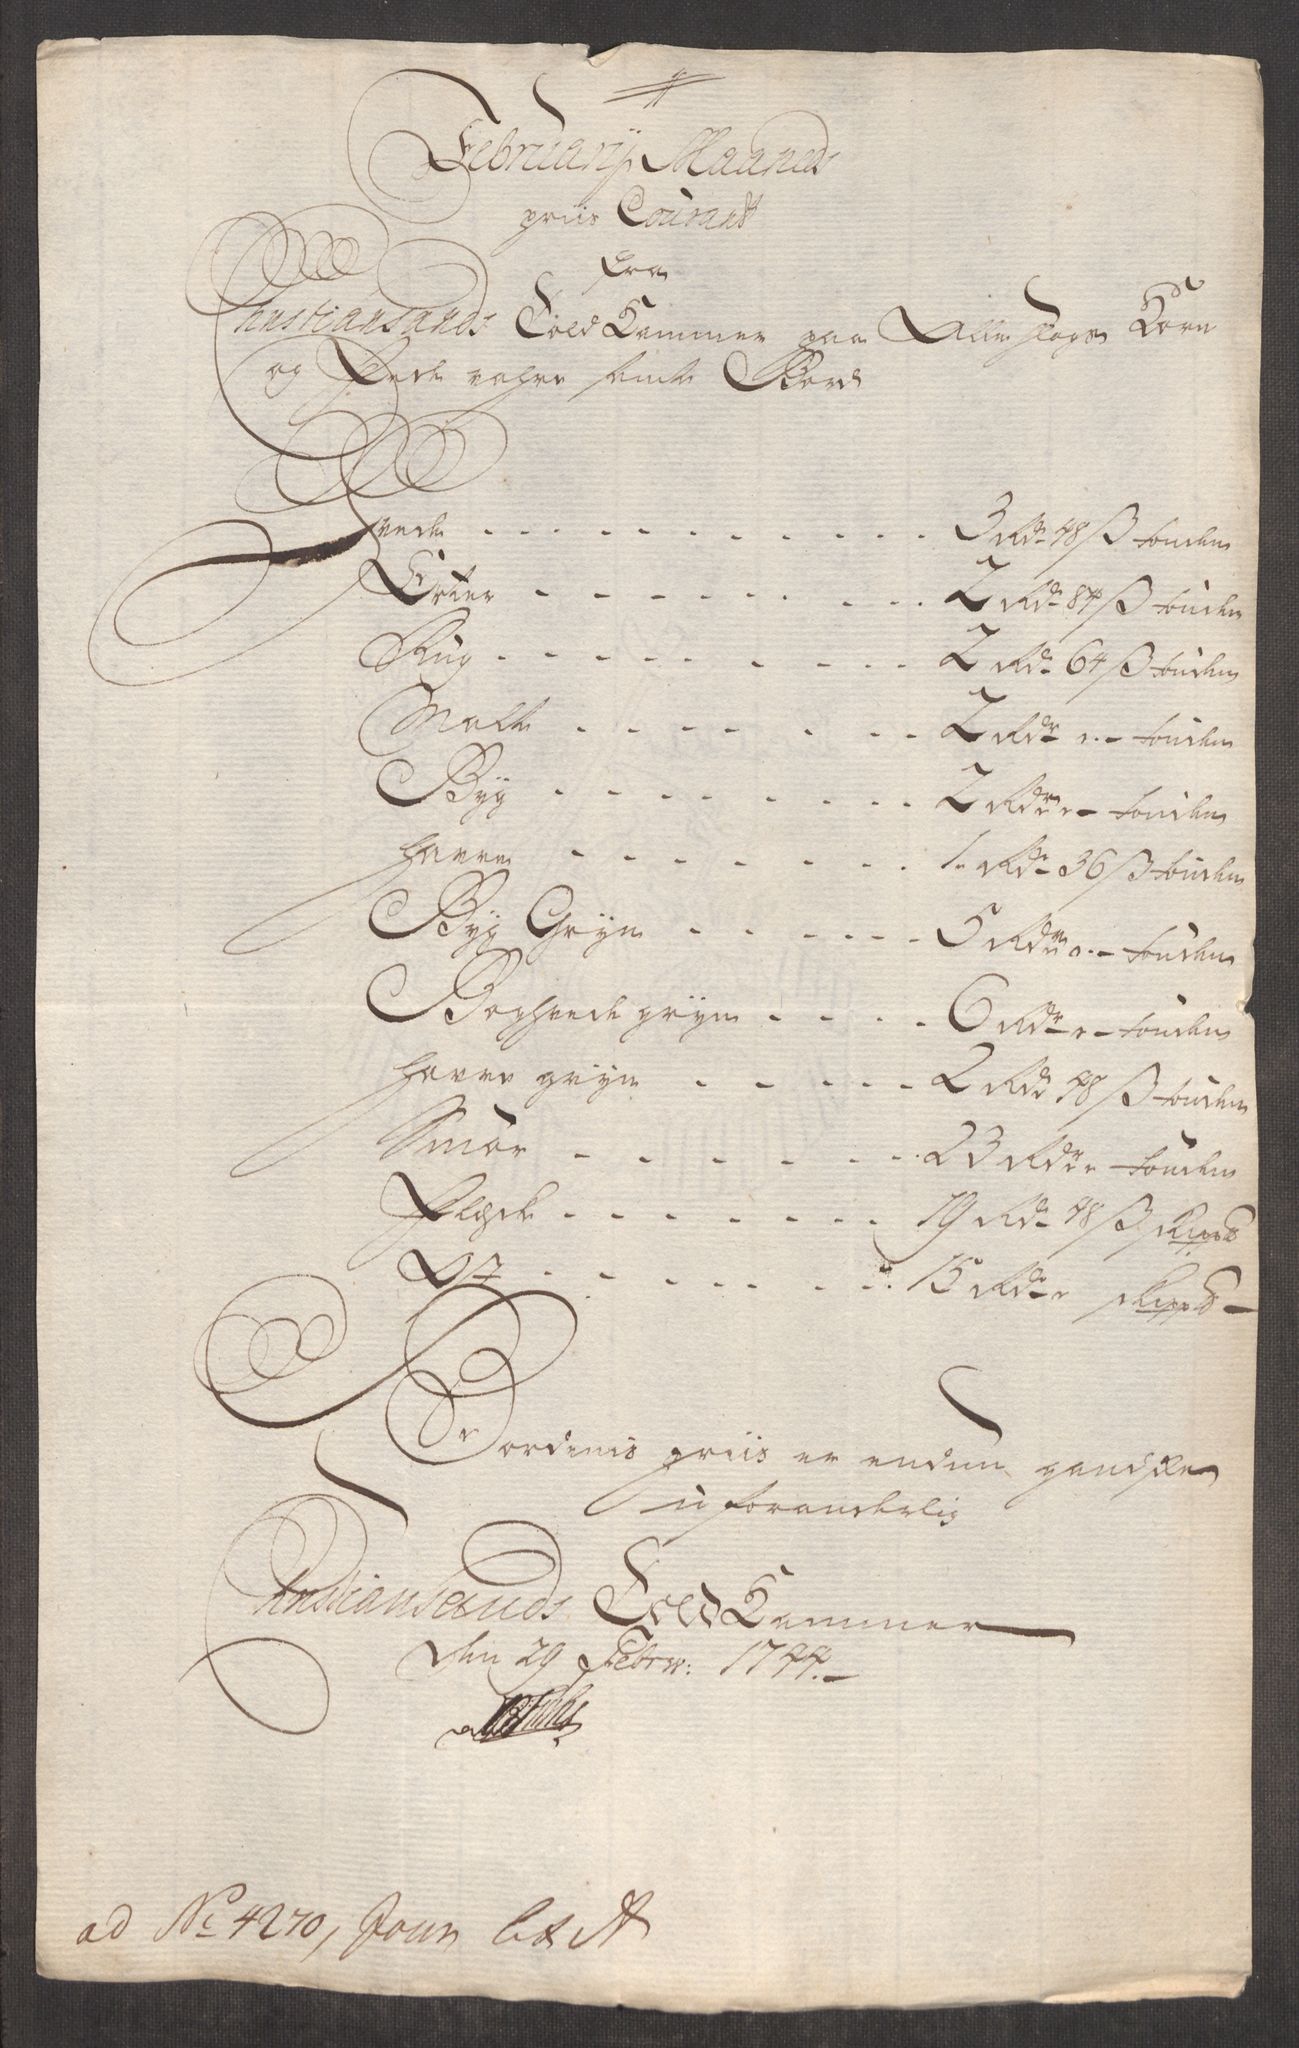 Februarij Maaneds
priis Courant
fra
Christiansands Told Kammer paa Alle slags Korn
og Fede vahre samt Bord
Hvede 3 Rdr 48 ß tønden
Erter 2 Rdr 84 ß tønden
Rug 2 Rdr 64 ß tønden
Malt 2 Rdr " - tønden
Byg 2 Rdr " - tønden
Havre 1 Rdr 36 ß tønden
Byg Gryn 5 Rdr " - tønden
Boghvede gryn 6 Rdr " - tønden
Havre gryn 2 Rdr 48 ß tønden
Smør 23 Rdr " tønden
Flesk 19 Rdr 48 ß skippd
Ost 15 Rdr " skippd
Bordenis priis er endnu gandske
uforanderlig
Christiansands Told Kammer
den 29 Febru: 1744.
ad No 4270, Jour Lit A